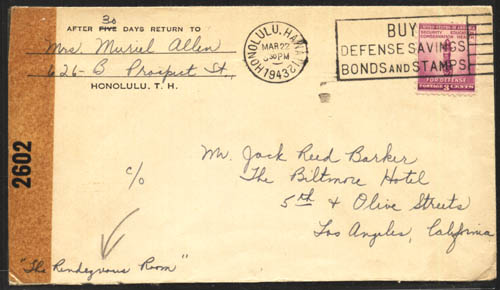 30
AFTER FIVE DAYS RETURN TO
Mrs. Muriel Allen
626-B Prospect St.,
HONOLULU, T. H.
HONOLULU, HAWAII
MAR 22
30 PM
1943
BUY
DEFENSE SAVINGS
BONDS AND STAMPS
UNITED STATES OF AMERICA
SECURITY EDUCATION
CONSERVATION HEALTH
FOR DEFENSE
3 CENTS
2602
c/o
Mr. Jack Reed Barker
The Biltmore Hotel
5th & Olive Streets
Los Angeles, California
"The Rendezvous Room"